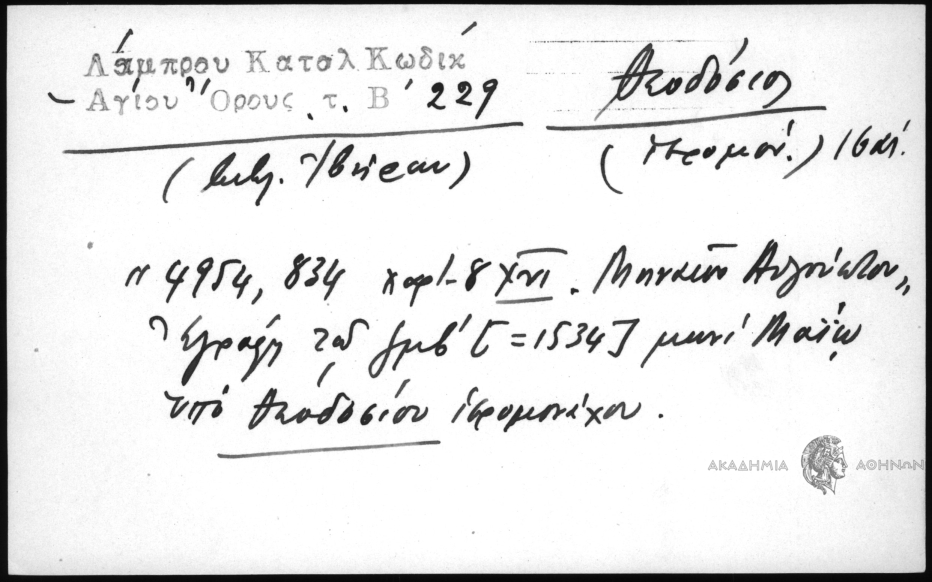 Λάμπρου Καταλ Κωδικ
Αγίου Όρους τ. Β' 229
Θεοδόσιος
(βιβλ. Ἰβήρων)
(ἱερομόν.) 16 αἰ.
" 4954, 834 χαρτ. 8 XVI. Μηναῖον Αὐγούστου "
Ἐγράφη τῷ ζμβ' [=1534] μηνὶ Μαΐῳ
ὑπὸ Θεοδοσίου ἱερομονάχου.
ΑΚΑΔΗΜΙΑ ΑΘΗΝΩΝ